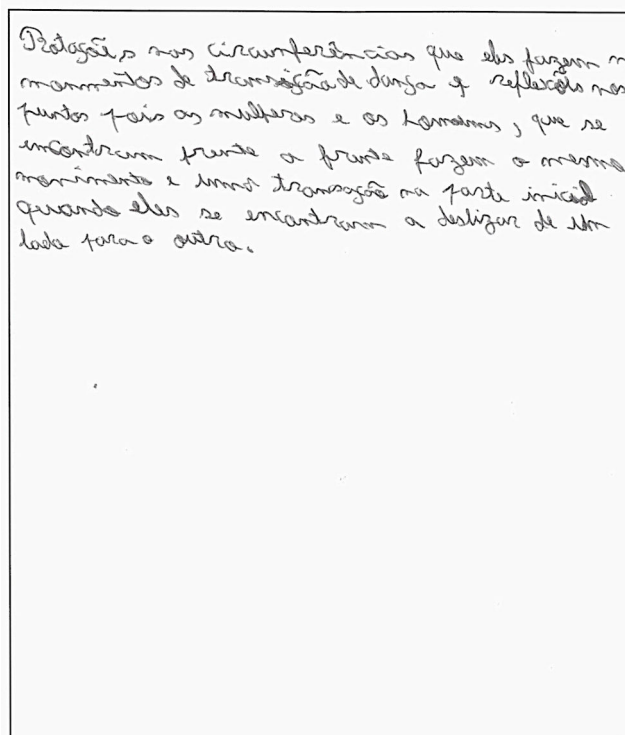 Rotações nas circunferências que eles fazem n
momentos de transição de dança e reflexões nos
puntos pois as mulheres e os homens, que se
encontram frente a frente fazem o mesmo
movimento e uma transação na parte inicial
quando eles se encontram a deslizar de um
lado para o outro.